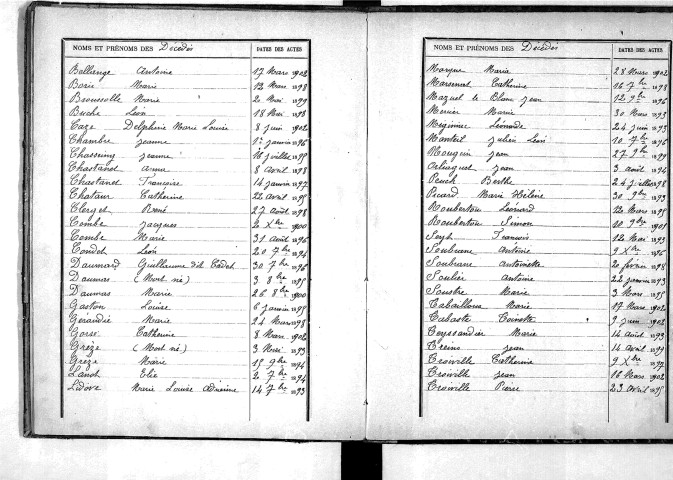 NOMS ET PRÉNOMS DES Décédés DATES DES ACTES
Ballange Antoine 17 Mars 1902
Borie Marie 12 Mars 1898
Broussolle Marie 2 Mai 1899
Buche Léon 18 Mai 1898
Caze Delphine Marie Louise 8 juin 1902
Chambre Jeanne 1er janvier 1896
Chasseing Jeanne 16 juillet 1895
Chastanet Anna 8 avril 1898
Chastanet Françoise 14 janvier 1897
Chatour Catherine 22 avril 1895
Clerget René 27 août 1898
Combe Jacques 2 Xbre 1900
Combe Marie 31 août 1896
Condch Léon 20 7bre 1894
Daumard Guillaume dit Cadet 30 7bre 1896
Daumas (Mort né) 3 8bre 1895
Daumas Marie 26 8bre 1900
Gaston Louise 6 janvier 1895
Géraudie Marie 24 Mars 1898
Gorse Catherine 8 Mars 1902
Grèze (Mort né) 3 Mai 1893
Grèze Marie 15 9bre 1894
Lanot Elie 2 7bre 1894
Lidove Marie Louise 14 7bre 1893
NOMS ET PRÉNOMS DES Décédés DATES DES ACTES
Marie 28 Mars 1902
Marsenat Catherine 16 7bre 1898
Mazuel le Blanc Jean 12 9bre 1896
Mercier Marie 30 Mars 1893
Léonode 24 juin 1893
Monteil Julien Léon 10 7bre 1896
Mougein Jean 27 9bre 1899
Orluguet Jean 3 août 1894
Peuch Berthe 24 juillet 1898
Picard Marie Hélène 30 9bre 1893
Rouberton Léonard 12 Mars 1895
Rouberton Simon 10 9bre 1901
François 12 Mai 1893
Soubrane Antoine 9 Xbre 1896
Soubrane Antoinette 20 février 1898
Soulier Antoine 22 janvier 1893
Soustre Marie 3 Mars 1895
Tabailloux Marie 17 Mars 1902
Tabaste Toinette 9 juin 1902
Teyssandier Marie 14 août 1893
Treins Jean 14 avril 1899
Troiville Catherine 9 Xbre 1897
Troiville Jean 16 Mars 1902
Troiville Pierre 23 avril 1895